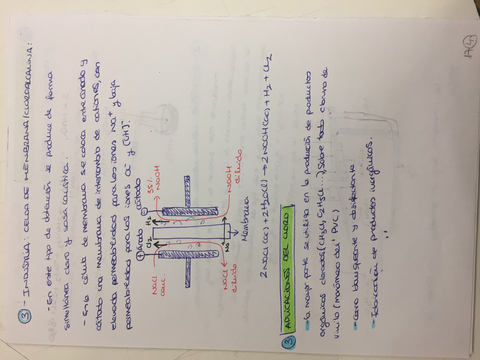 ③ - INDUSTRIA: CELDA DE MEMBRANA/CLOROALCALINA:
- En este tipo de obtención se produce de forma
simultánea cloro y sosa caústica.
- En la célula de membrana se coloca entre ánodo y
cátodo una membrana de intercambio de cationes, con
elevada permeabilidad para los iones Na⁺ y baja
permeabilidad para los iones Cl⁻ y (OH)⁻.
35%
NaOH
NaOH
diluido
⊖
Cátodo
H₂
Na⁺
Membrana
Cl₂
⊕
Ánodo
NaCl
conc.
NaCl
diluido
2NaCl(ac) + 2H₂O(l) → 2NaOH(ac) + H₂ + Cl₂
③ APLICACIONES DEL CLORO
la mayor parte se utiliza en la producción de productos
orgánicos clorados, sobre todo cloruro de
vinilo (monómero del PVC)
como blanqueante y desinfectante
Fabricación de productos inorgánicos.